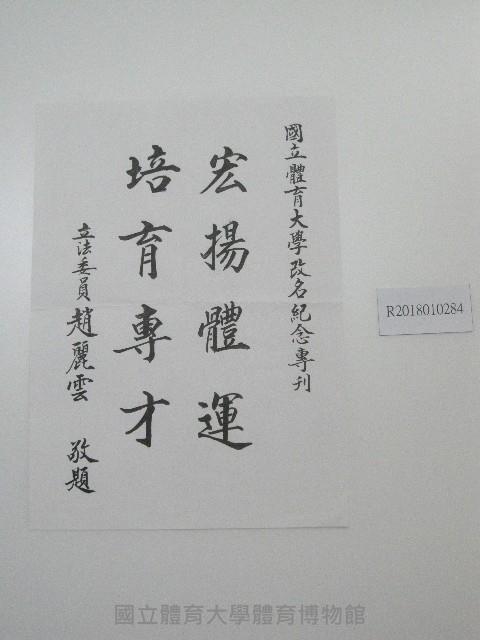 國立體育大學改名紀念專刊
宏揚體運
培育專才
立法委員趙麗雲 敬題
R2018010284
國立體育大學體育博物館